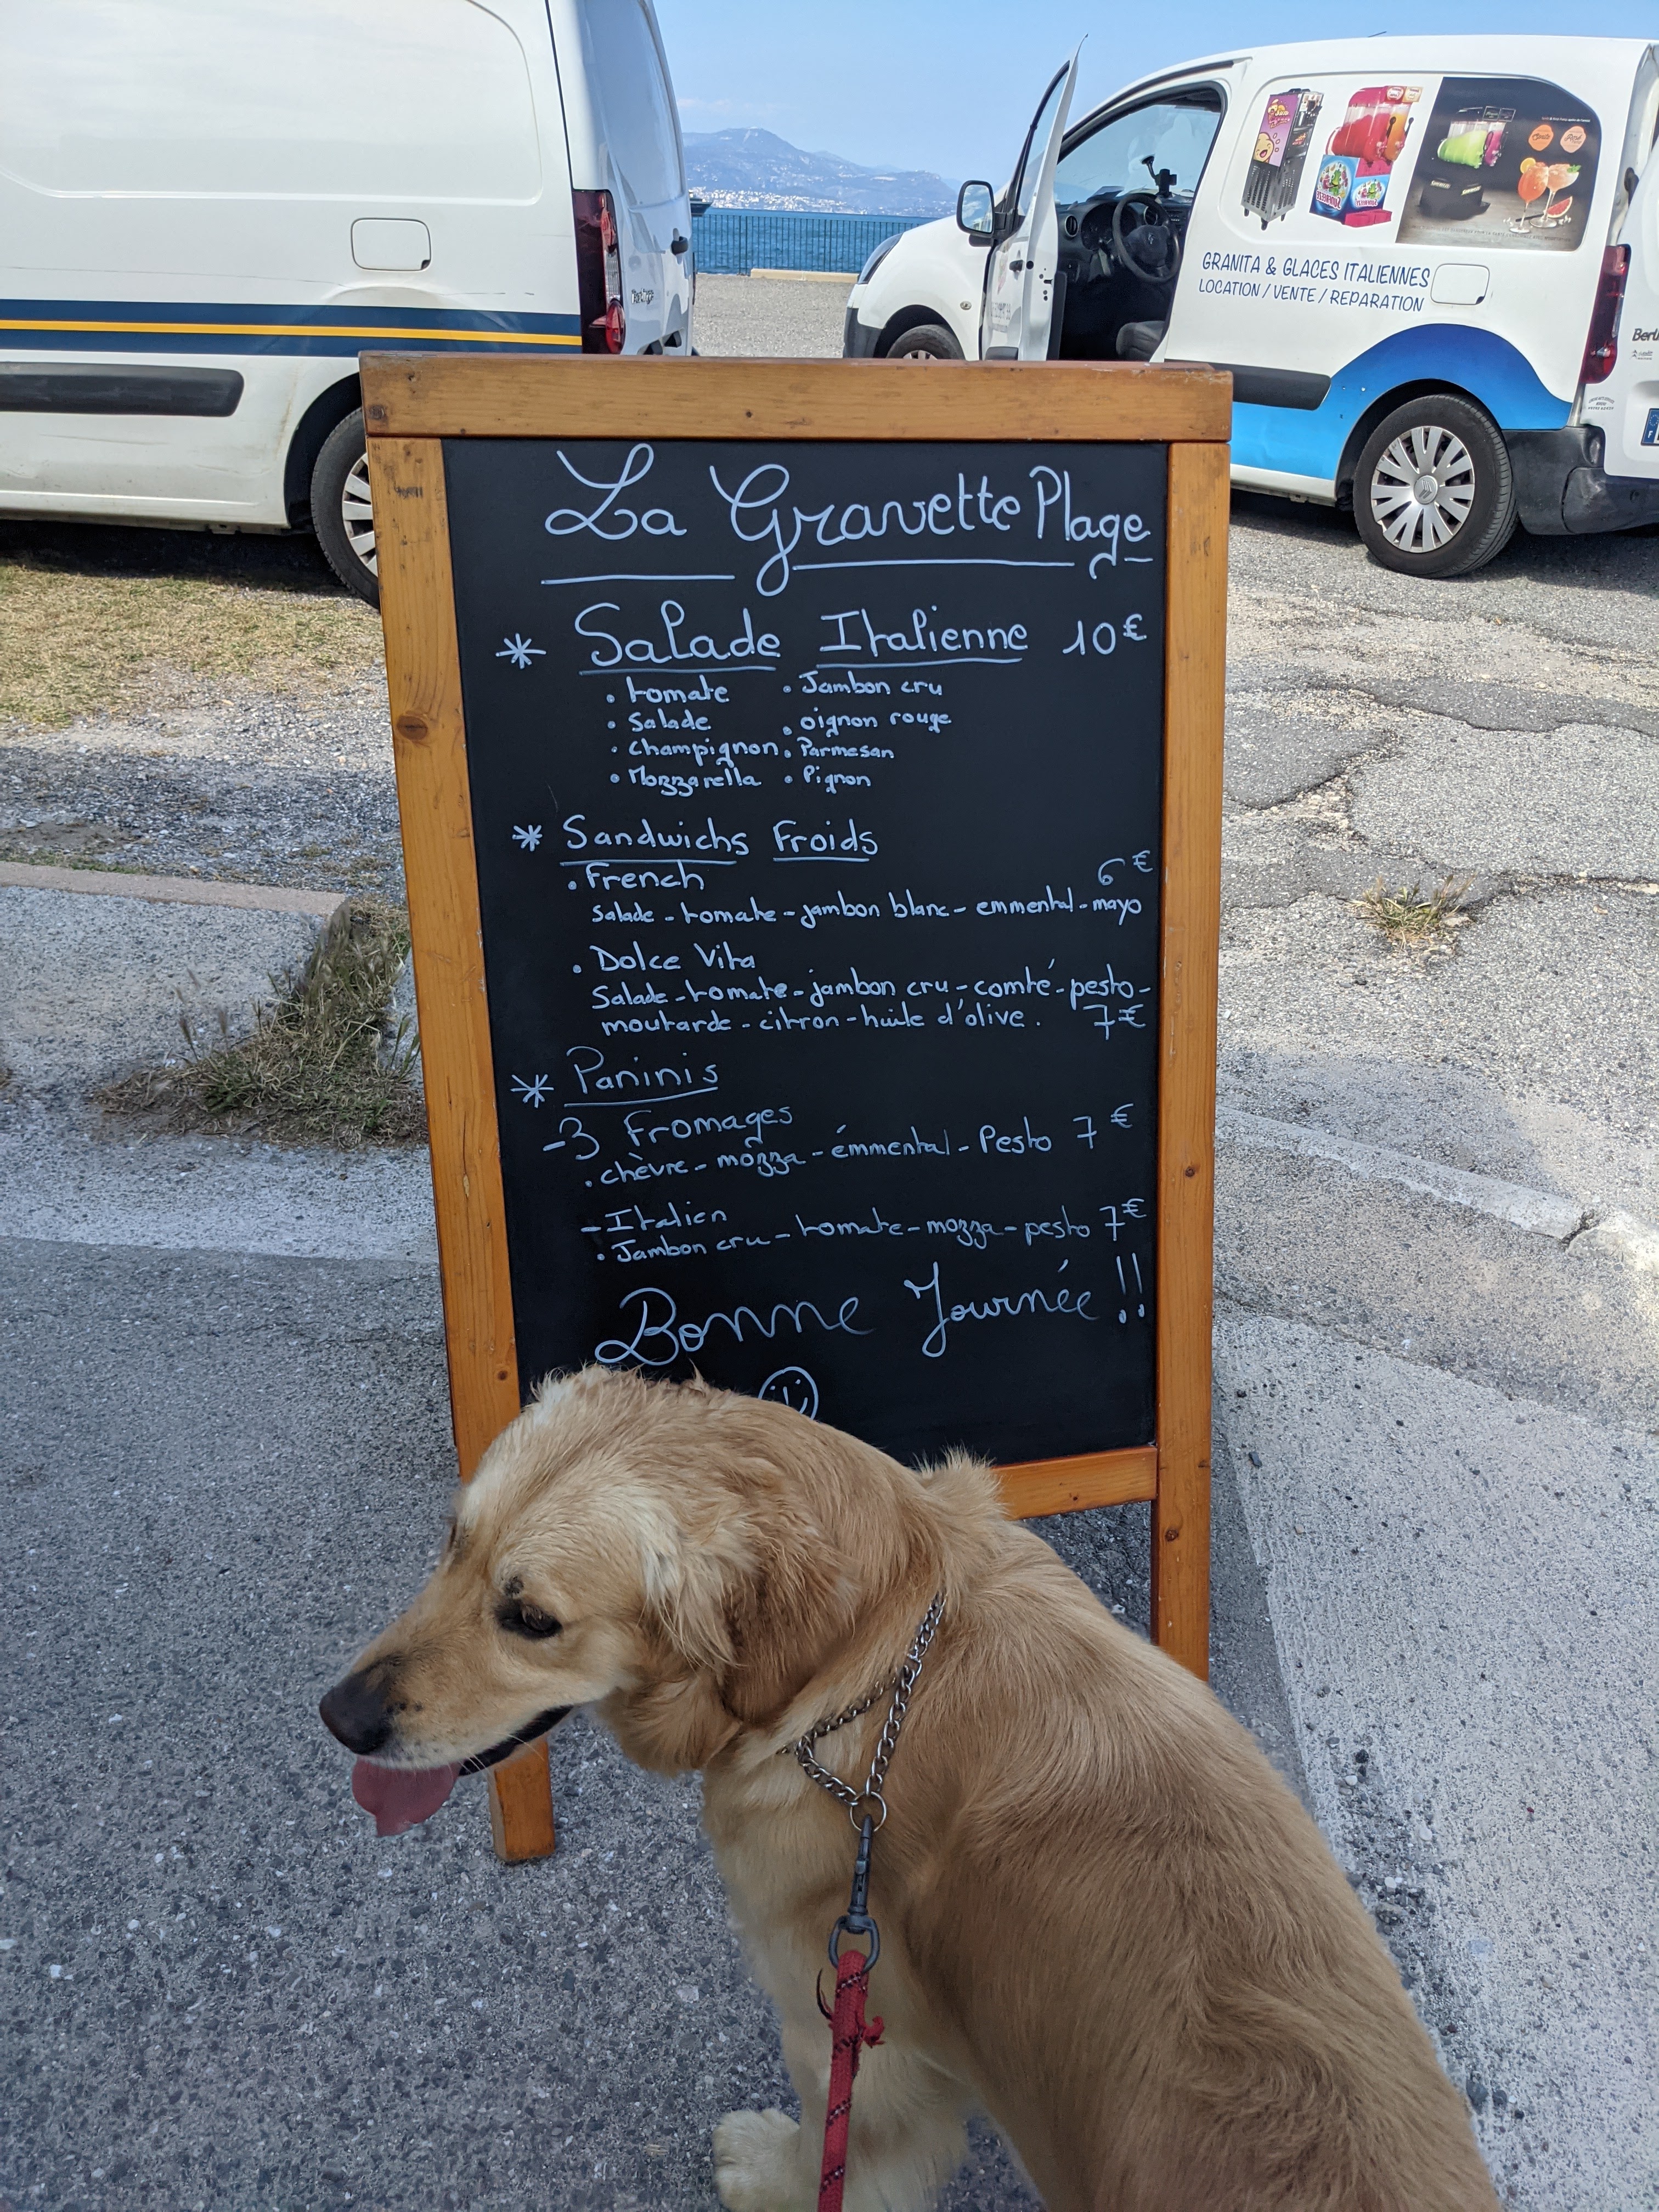 GRANITA & GLACES ITALIENNES
LOCATION / VENTE / REPARATION
La Gravette Plage
* Salade Italienne 10€
. tomate . Jambon cru
. Salade . oignon rouge
. champignon . Parmesan
. Mozzarella . Pignon
* Sandwichs Froids
. French 6€
salade - tomate - jambon blanc - emmental - mayo
. Dolce Vita
Salade - tomate - jambon cru - comté - pesto -
moutarde - citron - huile d'olive . 7€
* Paninis
-3 Fromages
. chèvre - mozza - émmental - Pesto 7€
- Italien
. Jambon cru - tomate - mozza - pesto 7€
Bonne Journée !!